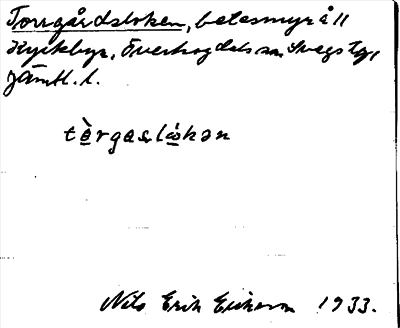 Torrgårdsloken, betesmyr å 11
Kyrkbyn, Överhogdals sn, Svegs tg,
Jämtl. l.
tòrgaslòkən
Nils Erik Erikson 1933.